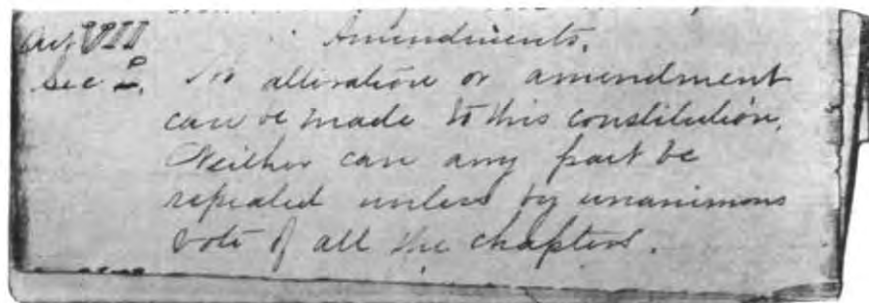 Art VIII Amendments.
Sec I. No alteration or amendment
can be made to this constitution.
Neither can any part be
repealed unless by unanimous
vote of all the chapters.